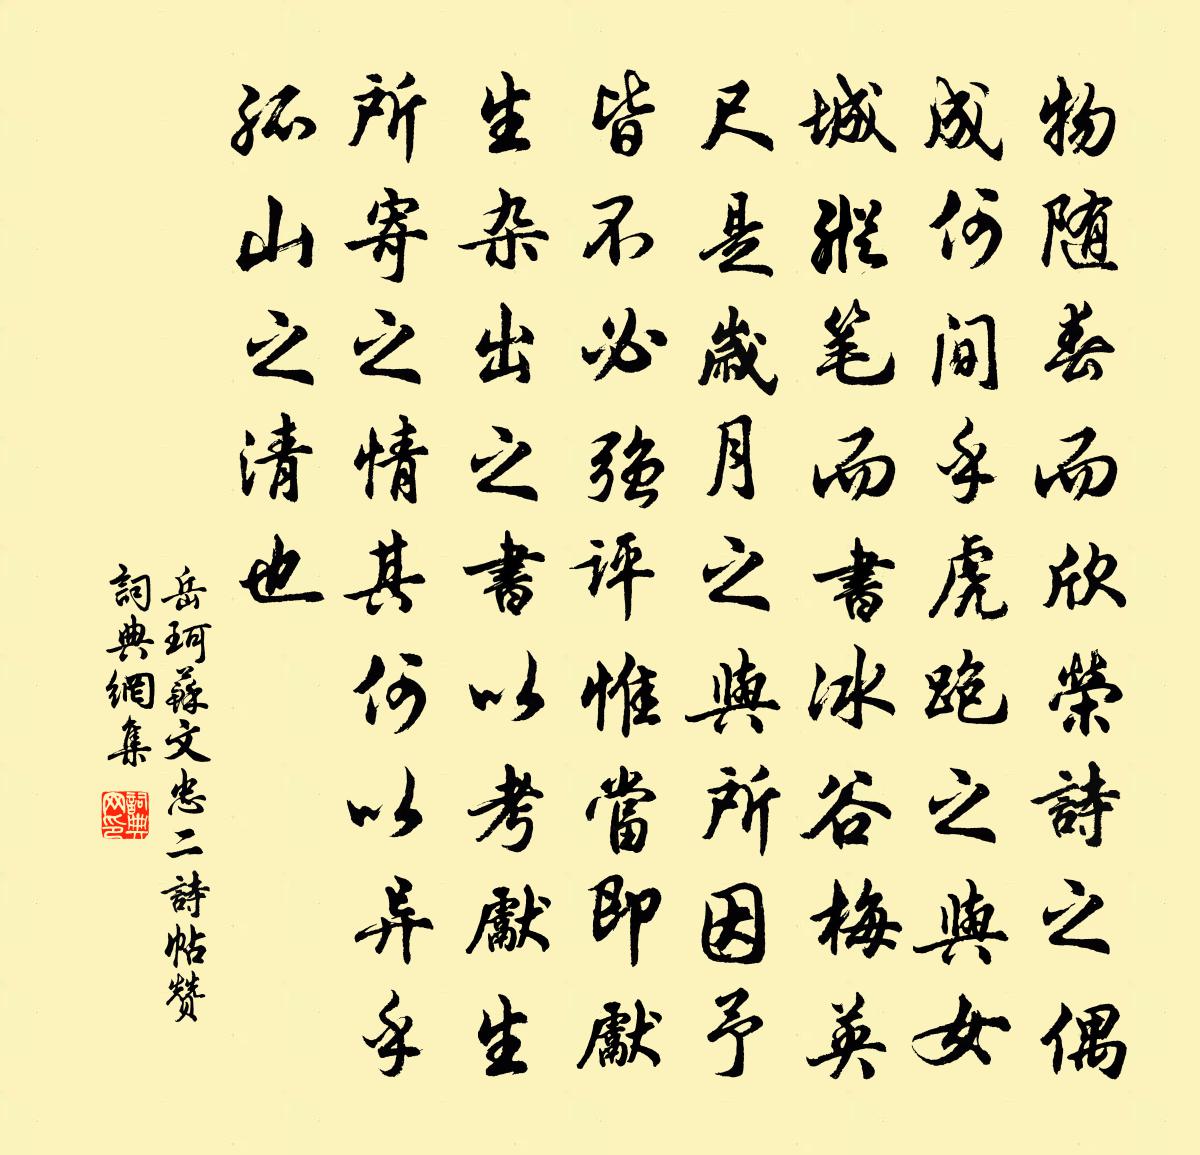 物随春而欣榮詩之偶
成何间乎虎跑之與女
城縱笔而書冰谷梅英
尺是歲月之與所因予
皆不必强评惟當即獻
生杂出之書以考獻生
所寄之情其何以异乎
孤山之清也
岳珂蘇文忠二詩帖赞
詞典網集
詞典网印